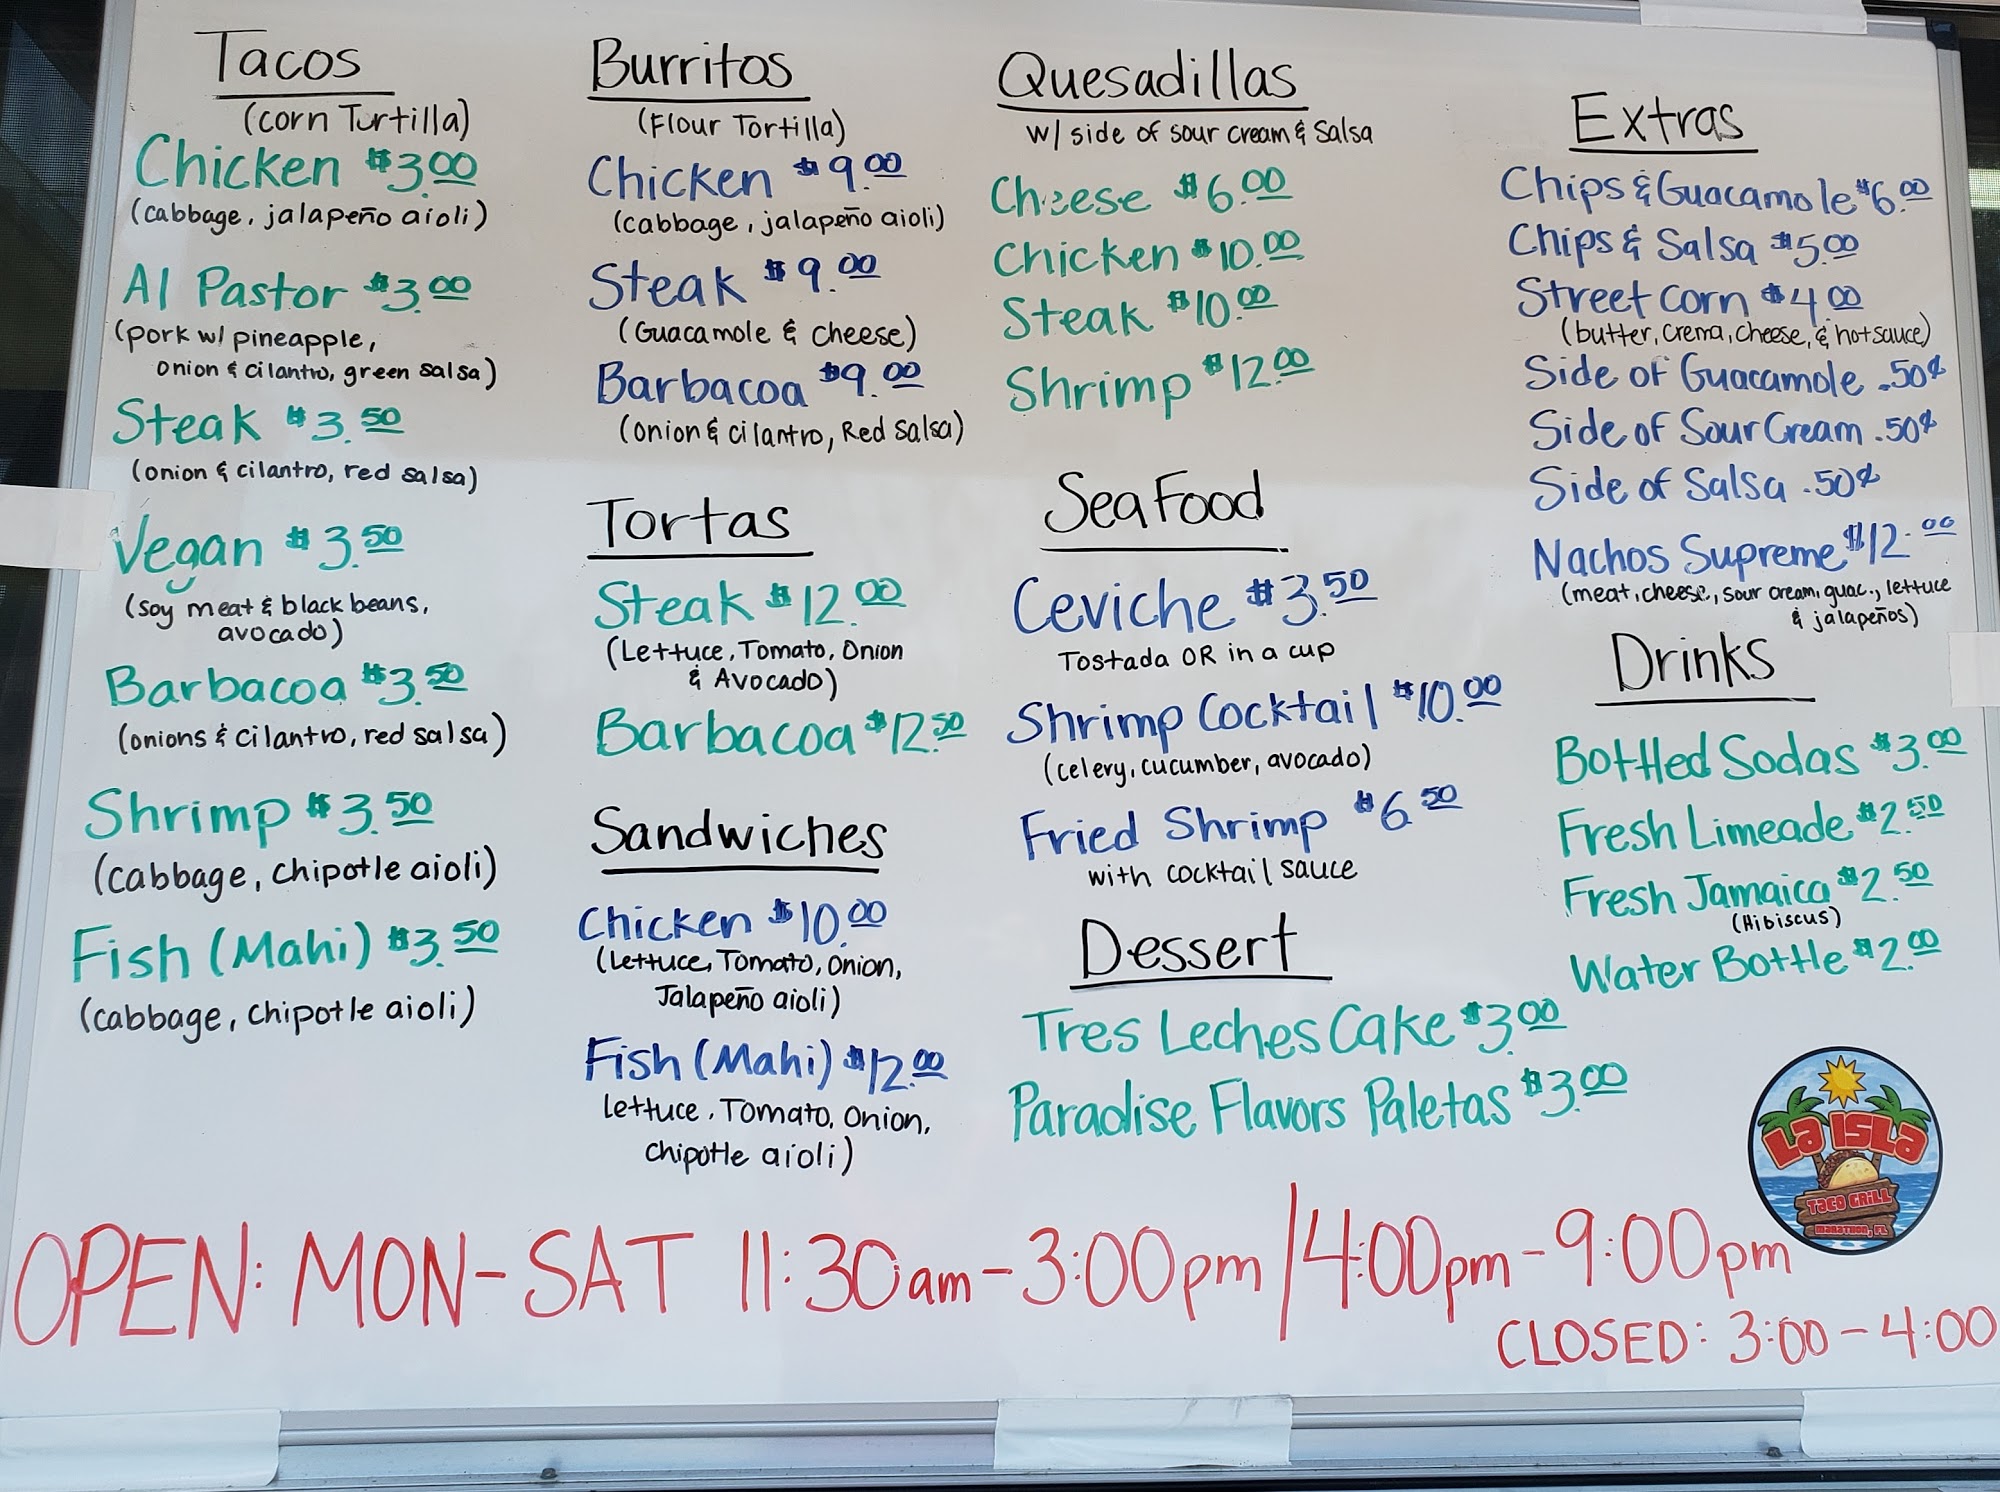 Tacos
(corn Turtilla)
Chicken $3.00
(cabbage, jalapeño aioli)
Al Pastor $3.00
(pork w/ pineapple,
onion & cilantro, green salsa)
Steak $3.50
(onion & cilantro, red salsa)
Vegan $3.50
(soy meat & black beans,
avocado)
Barbacoa $3.50
(onions & cilantro, red salsa)
Shrimp $3.50
(cabbage, chipotle aioli)
Fish (Mahi) $3.50
(cabbage, chipotle aioli)
Burritos
(Flour Tortilla)
Chicken $9.00
(cabbage, jalapeño aioli)
Steak $9.00
(Guacamole & cheese)
Barbacoa $9.00
(onion & cilantro, Red salsa)
Tortas
Steak $12.00
(Lettuce, Tomato, Onion
& Avocado)
Barbacoa $12.50
Sandwiches
Chicken $10.00
(Lettuce, Tomato, onion,
Jalapeño aioli)
Fish (Mahi) $12.00
Lettuce, Tomato, Onion,
chipotle aioli)
Quesadillas
w/ side of sour cream & salsa
Cheese $6.00
Chicken $10.00
Steak $10.00
Shrimp $12.00
Seafood
Ceviche $3.50
Tostada OR in a cup
Shrimp Cocktail $10.00
(celery, cucumber, avocado)
Fried Shrimp $6.50
with cocktail sauce
Dessert
Tres Leches Cake $3.00
Paradise Flavors Paletas $3.00
Extras
Chips & Guacamole $6.00
Chips & Salsa $5.00
Street corn $4.00
(butter, crema, cheese, & hot sauce)
Side of Guacamole .50¢
Side of Sour Cream .50¢
Side of Salsa .50¢
Nachos Supreme $12.00
(meat, cheese, sour cream, guac., lettuce
& jalapeños)
Drinks
Bottled Sodas $3.00
Fresh Limeade $2.50
Fresh Jamaica $2.50
(Hibiscus)
Water Bottle $2.00
LA ISLA
TACO GRILL
MARATHON, FL
OPEN: MON-SAT 11:30am-3:00pm/4:00pm-9:00pm
CLOSED: 3:00-4:00